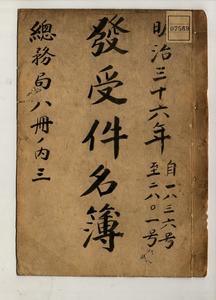 07569
明治三十六年
自一八三六号
至二八〇一号
發受件名簿
總務局八冊ノ内三